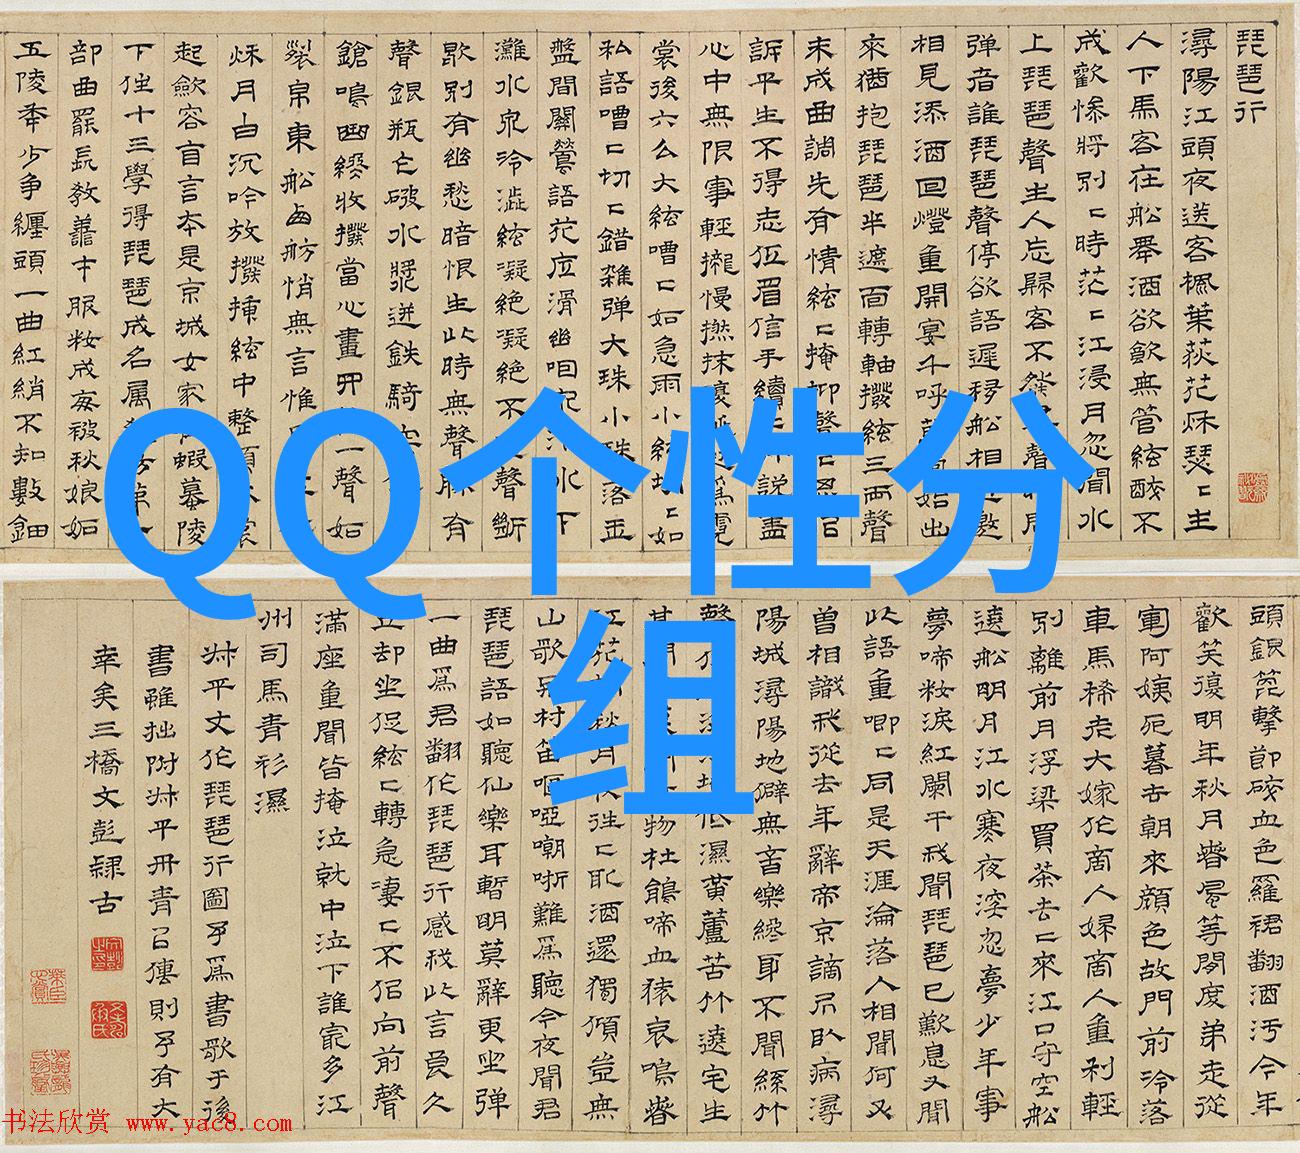 琵琶行
潯陽江頭夜送客楓葉荻花秌瑟〻主
人下馬客在船舉酒欲飲無管絃醉不
成歡慘將別〻時茫〻江浸月忽聞水
上琵琶聲主人忘歸客不發聲暗問
彈者誰琵琶聲停欲語遲移船相近邀
相見添酒回燈重開宴千呼萬喚始出
來猶抱琵琶半遮面轉軸撥絃三兩聲
未成曲調先有情絃〻掩抑聲〻思侣
訴平生不得志低眉信手續〻彈說盡
心中無限事輕攏慢撚抹復挑初爲霓
裳後六么大絃嘈〻如急雨小絃切〻如
私語嘈〻切〻錯雜彈大珠小珠落玉
盤間關鶯語花底滑幽咽泉流水下
灘水泉冷澁絃凝絶凝絶不通聲漸
歇別有幽愁暗恨生此時無聲勝有
聲銀瓶乍破水漿迸鉄騎突
鎗鳴曲終收撥當心畫四絃一聲如
裂帛東船西舫悄無言惟見江
秌月白沉吟放撥揷絃中整頓衣裳
起斂容自言本是京城女家住蝦蟇陵
下住十三學得琵琶成名屬教坊第一
部曲罷長教善才服粧成每被秋娘妬
五陵年少争纏頭一曲紅綃不知數鈿
QQ个性分组
頭銀篦擊節破血色羅裙翻酒污今年
歡笑復明年秋月春風等閒度弟走從
軍阿姨死暮去朝來顏色故門前冷落
車馬稀老大嫁作商人婦商人重利輕
別離前月浮梁買茶去〻來江口守空船
遶船明月江水寒夜深忽夢少年事
夢啼粧淚紅闌干我聞琵琶已歎息又聞
此語重唧〻同是天涯淪落人相聞何必
曾相識我從去年辭帝京謫居臥病潯
陽城潯陽地僻無音樂終歲不聞絲竹
聲住近湓城地低濕黄蘆苦竹遶宅生
其間旦暮聞何物杜鵑啼血猿哀鳴春
江花朝秋月夜往〻取酒還獨傾豈無
山歌與村笛嘔啞嘲哳難爲聽今夜聞君
琵琶語如聽仙樂耳暫明莫辭更坐彈
一曲爲君翻作琵琶行感我此言良久
立却坐促絃〻轉急凄〻不侣向前聲
滿座重聞皆掩泣就中泣下誰寂多江
州司馬青衫濕
叔平丈作琵琶行圖予爲書歌于後
書雖拙附叔平丹青以傳則予有大
幸矣三橋文彭隸古
书法欣赏 www.yac8.com